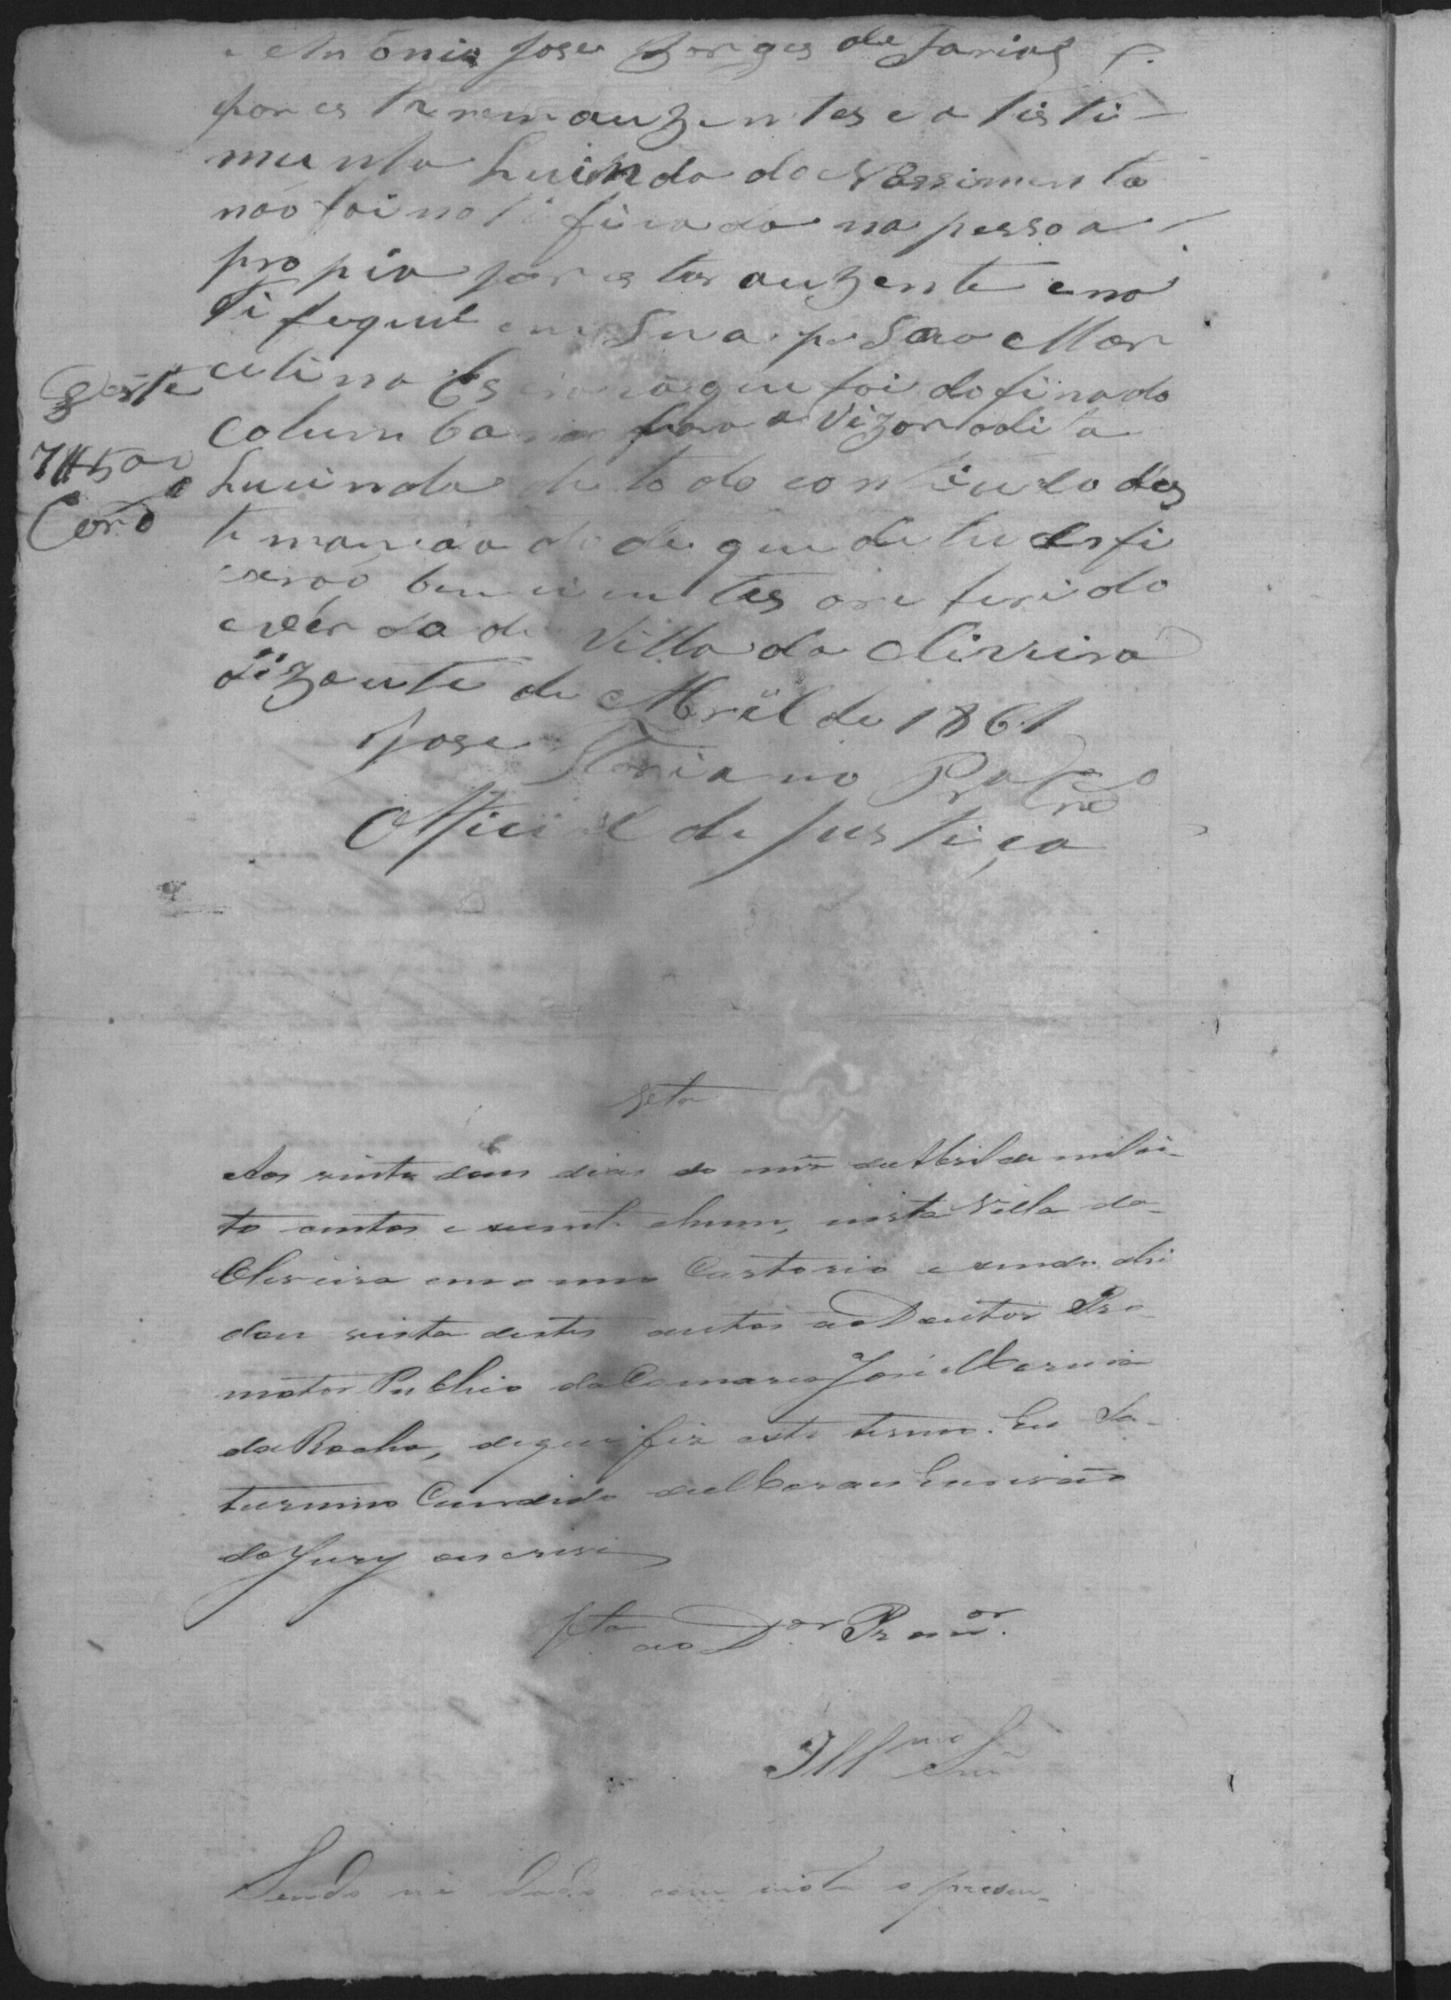 Antônio Jose Borges de Farias
por es tarem auzentes e a tisti-
munha Luinda do Nassimento
não foi notificada na pessoa
propia por estar auzente e no
tifequei em Sua pesoa Mar
celina Escrava que foi do finado
Columbano para avizar a dita
Deste
Lucinda de todo contiudo des
7#500
te mandado de que de tudo fi
Cordo
carão bem cientes o referido
e verdade Villa da Oliveira
vizaute de Abril de 1861
Jose Floriano
Official de Justiça
Vta
Aos vinte dous dias do mez de Abril de mil oi-
to centos e secenta e hum, nesta Villa da
Oliveira em o meu Cartorio e sendo ahi
dou vista destes autos ao Doutor Pro-
motor Publico da Comarca José
da Rocha, de que fiz este termo. Eu Sa-
turnino Candido Escrivão
do Jury escrevi
Vta ao Dor Promor.
Illmo Snr
Sendo me dado com vista o presen-